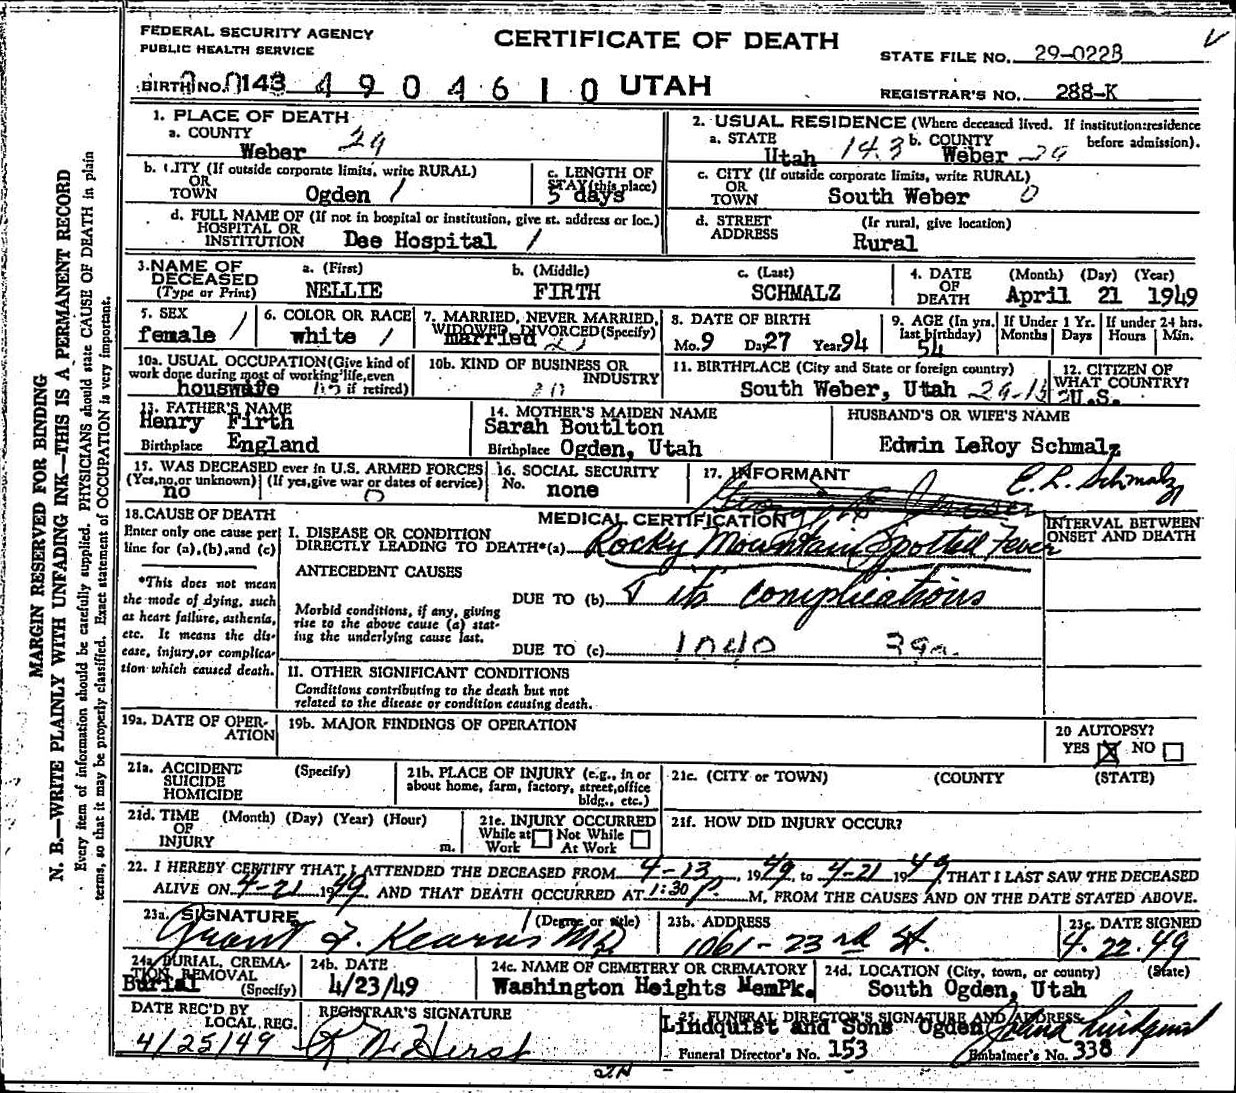 FEDERAL SECURITY AGENCY
PUBLIC HEALTH SERVICE
CERTIFICATE OF DEATH
STATE FILE NO. 29-022B
BIRTH NO. 0143 4904610 UTAH
REGISTRAR'S NO. 288-K
1. PLACE OF DEATH
a. COUNTY
Weber 29
2. USUAL RESIDENCE (Where deceased lived. If institution:residence before admission).
a. STATE Utah 143 b. COUNTY Weber 29
b. CITY (If outside corporate limits, write RURAL)
OR
TOWN Ogden 1
c. LENGTH OF
STAY (this place)
5 days
c. CITY (If outside corporate limits, write RURAL)
OR
TOWN South Weber 0
d. FULL NAME OF (If not in hospital or institution, give st. address or loc.)
HOSPITAL OR
INSTITUTION Dee Hospital 1
d. STREET ADDRESS (If rural, give location)
Rural
3. NAME OF DECEASED
(Type or Print)
a. (First) b. (Middle) c. (Last)
NELLIE FIRTH SCHMALZ
4. DATE OF DEATH (Month) (Day) (Year)
April 21 1949
5. SEX
female 1
6. COLOR OR RACE
white 1
7. MARRIED, NEVER MARRIED,
WIDOWED, DIVORCED (Specify)
married
8. DATE OF BIRTH
Mo. 9 Day 27 Year 94
9. AGE (In yrs. last birthday)
54
If Under 1 Yr.
Months Days
If under 24 hrs.
Hours Min.
10a. USUAL OCCUPATION (Give kind of
work done during most of working life, even
if retired)
houswife
10b. KIND OF BUSINESS OR
INDUSTRY
11. BIRTHPLACE (City and State or foreign country)
South Weber, Utah
12. CITIZEN OF
WHAT COUNTRY?
U.S.
13. FATHER'S NAME
Henry Firth
Birthplace England
14. MOTHER'S MAIDEN NAME
Sarah Boutlton
Birthplace Ogden, Utah
HUSBAND'S OR WIFE'S NAME
Edwin LeRoy Schmalz
15. WAS DECEASED ever in U.S. ARMED FORCES
(Yes, no, or unknown) (If yes, give war or dates of service)
no 0
16. SOCIAL SECURITY
No. none
17. INFORMANT
E. L. Schmalz
18. CAUSE OF DEATH
Enter only one cause per
line for (a), (b), and (c)
*This does not mean
the mode of dying, such
as heart failure, asthenia,
etc. It means the dis-
ease, injury, or complica-
tion which caused death.
MEDICAL CERTIFICATION
INTERVAL BETWEEN
ONSET AND DEATH
I. DISEASE OR CONDITION
DIRECTLY LEADING TO DEATH*(a) Rocky Mountain Spotted Fever
ANTECEDENT CAUSES
DUE TO (b) & its complications
Morbid conditions, if any, giving
rise to the above cause (a) stat-
ing the underlying cause last.
DUE TO (c) 1040 39a
II. OTHER SIGNIFICANT CONDITIONS
Conditions contributing to the death but not
related to the disease or condition causing death.
19a. DATE OF OPER-
ATION
19b. MAJOR FINDINGS OF OPERATION
20 AUTOPSY?
YES X NO
21a. ACCIDENT (Specify)
SUICIDE
HOMICIDE
21b. PLACE OF INJURY (e.g., in or
about home, farm, factory, street, office
bldg., etc.)
21c. (CITY or TOWN) (COUNTY) (STATE)
21d. TIME (Month) (Day) (Year) (Hour)
OF
INJURY m.
21e. INJURY OCCURRED
While at Work Not While At Work
21f. HOW DID INJURY OCCUR?
22. I HEREBY CERTIFY THAT I ATTENDED THE DECEASED FROM 4-13, 1949, to 4-21 1949 THAT I LAST SAW THE DECEASED
ALIVE ON 4-21 1949, AND THAT DEATH OCCURRED AT 1:30 P. M, FROM THE CAUSES AND ON THE DATE STATED ABOVE.
23a. SIGNATURE (Degree or title)
Grant F. Kearns MD
23b. ADDRESS
1061-23rd St.
23c. DATE SIGNED
4.22.49
24a. BURIAL, CREMA-
TION REMOVAL
Burial (Specify)
24b. DATE
4/23/49
24c. NAME OF CEMETERY OR CREMATORY
Washington Heights MemPk.
24d. LOCATION (City, town, or county) (State)
South Ogden, Utah
DATE REC'D BY
LOCAL REG.
4/25/49
REGISTRAR'S SIGNATURE
25. FUNERAL DIRECTOR'S SIGNATURE AND ADDRESS
Lindquist and Sons Ogden
Funeral Director's No. 153
Embalmer's No. 338
MARGIN RESERVED FOR BINDING
N. B.—WRITE PLAINLY WITH UNFADING INK—THIS IS A PERMANENT RECORD
Every item of information should be carefully supplied. PHYSICIANS should state CAUSE OF DEATH in plain
terms, so that it may be properly classified. Exact statement of OCCUPATION is very important.